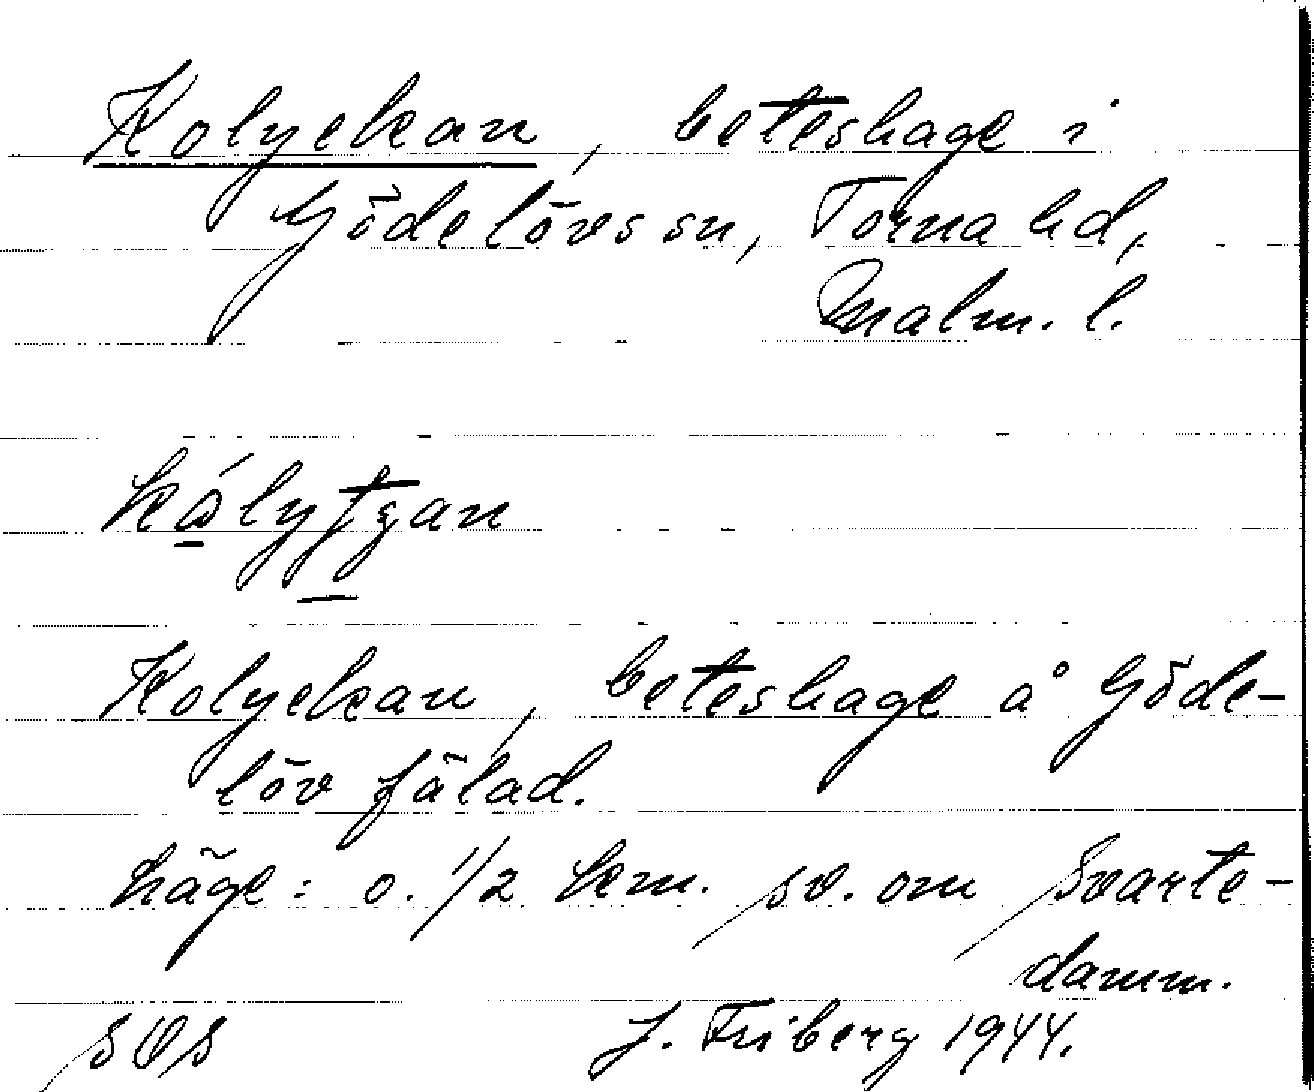 Kolyckan, beteshage i
Gödelövs sn, Torna hd,
Malm. l.
Kolyckan, beteshage å Göde-
löv fälad.
Läge: o. 1/2 km. sv. om Svarte-
damm.
J. Friberg 1944.